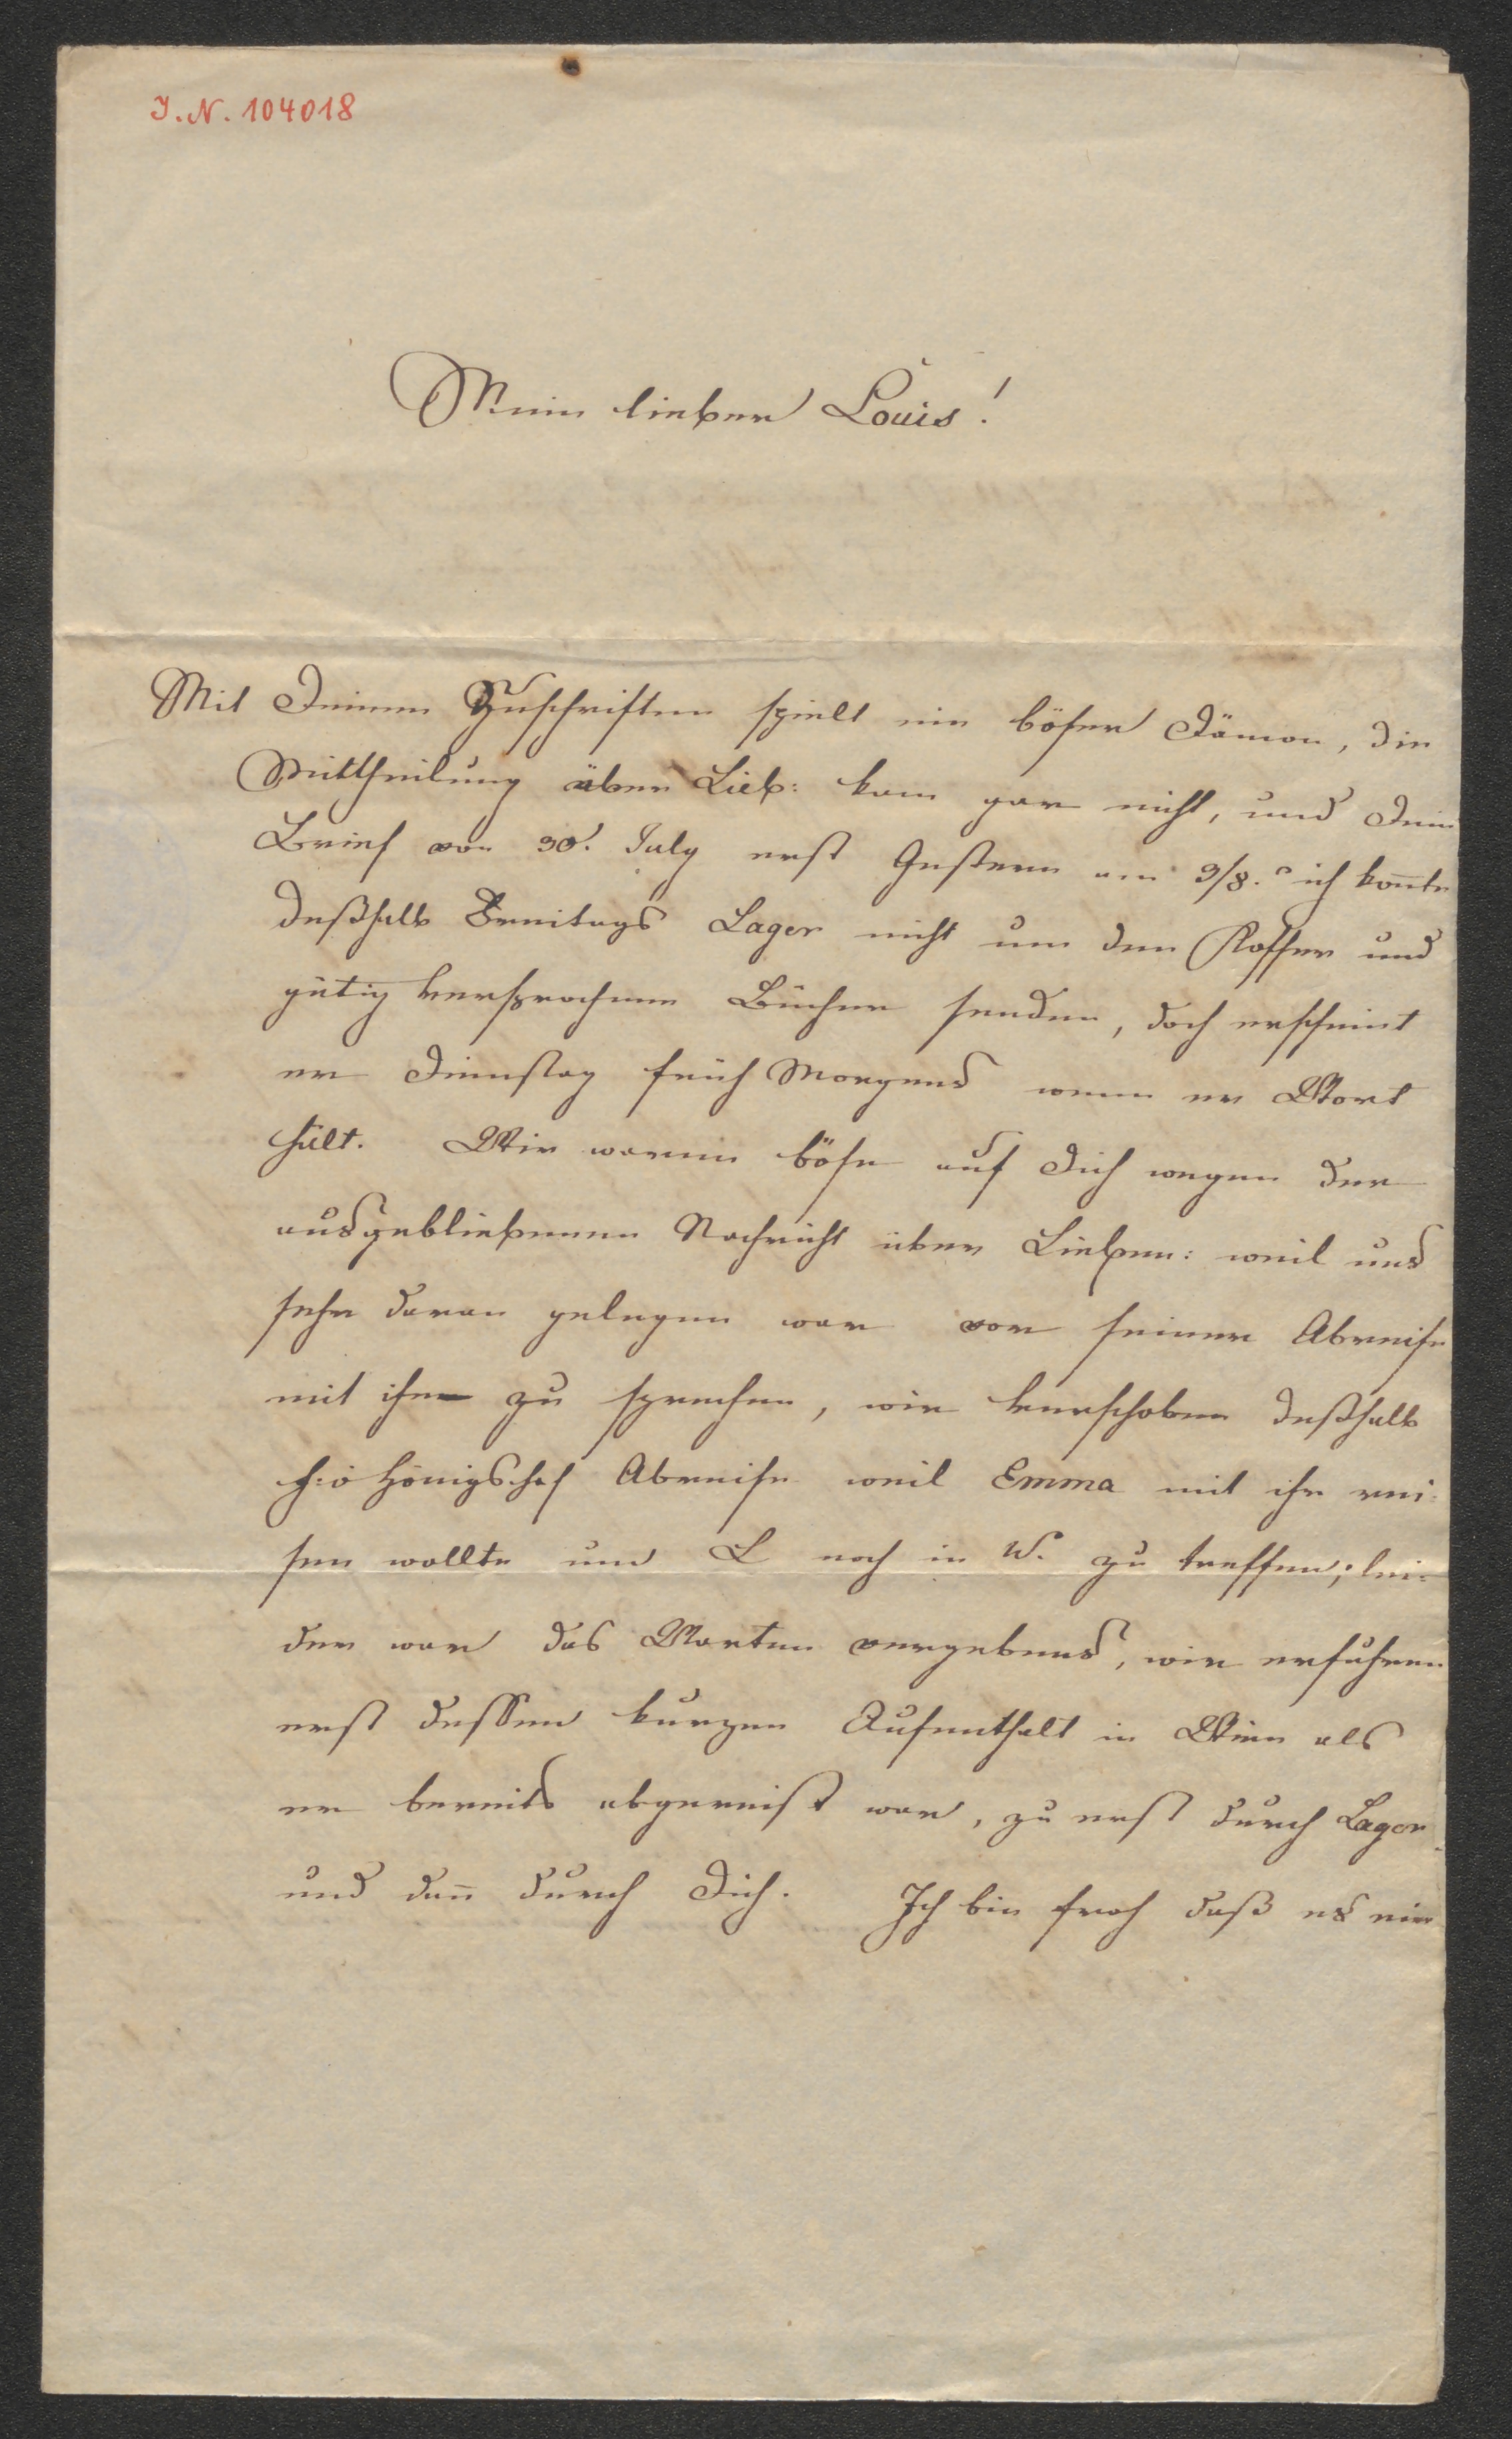 I.N. 104018
Mein lieber Louis!
Mit Deinen Zuschriften spielt ein böser Dämon, die
Mittheilung über Lieb: kam gar nicht, und Dein
Brief von 30. July erst Gestern am 3/8. ich koñte
deßhalb Freitags Lager nicht um den Koffer und
gütig versprochenen Bücher senden, doch erscheint
er Dienstag früh Morgens wenn er Wort
hält. Wir waren böse auf Dich wegen der
ausgebliebenen Nachricht über Lieben: weil uns
sehr daran gelegen war vor seiner Abreise
mit ihm zu sprechen, wir verschoben deßhalb
Königshof Abreise weil Emma mit ihr rei-
sen wollte um L noch in W. zu treffen; lei-
der war das Warten vergebens, wir erfuhren
erst dessen kurzen Aufenthalt in Wien als
er bereits abgereist war, zu erst durch Lager
und dañ durch Dich. Ich bin froh daß es